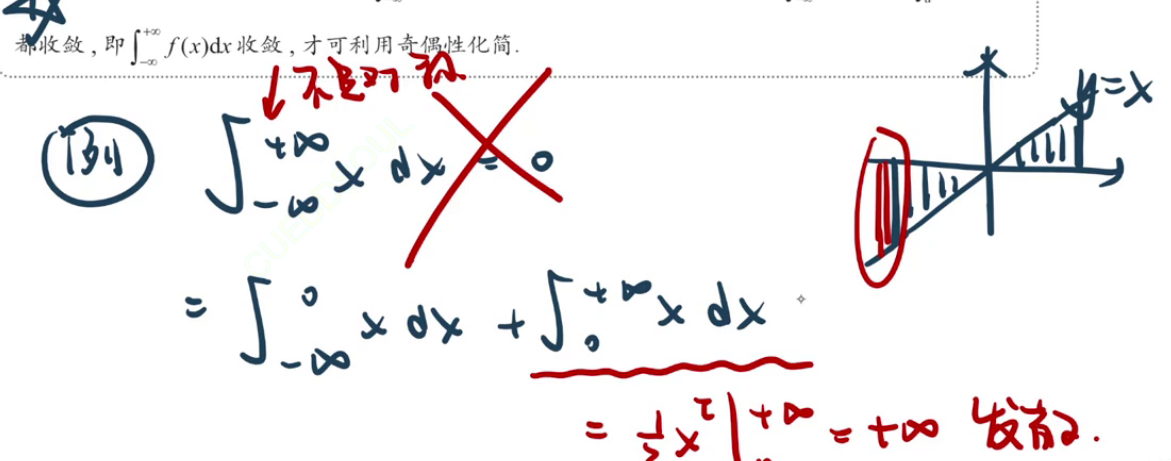 都收敛,即∫_{-∞}^{+∞} f(x)dx 收敛,才可利用奇偶性化简.
不是对称
例 ∫_{-∞}^{+∞} x dx = 0
y=x
= ∫_{-∞}^{0} x dx + ∫_{0}^{+∞} x dx
= ½x²|^{+∞} = +∞ 发散.